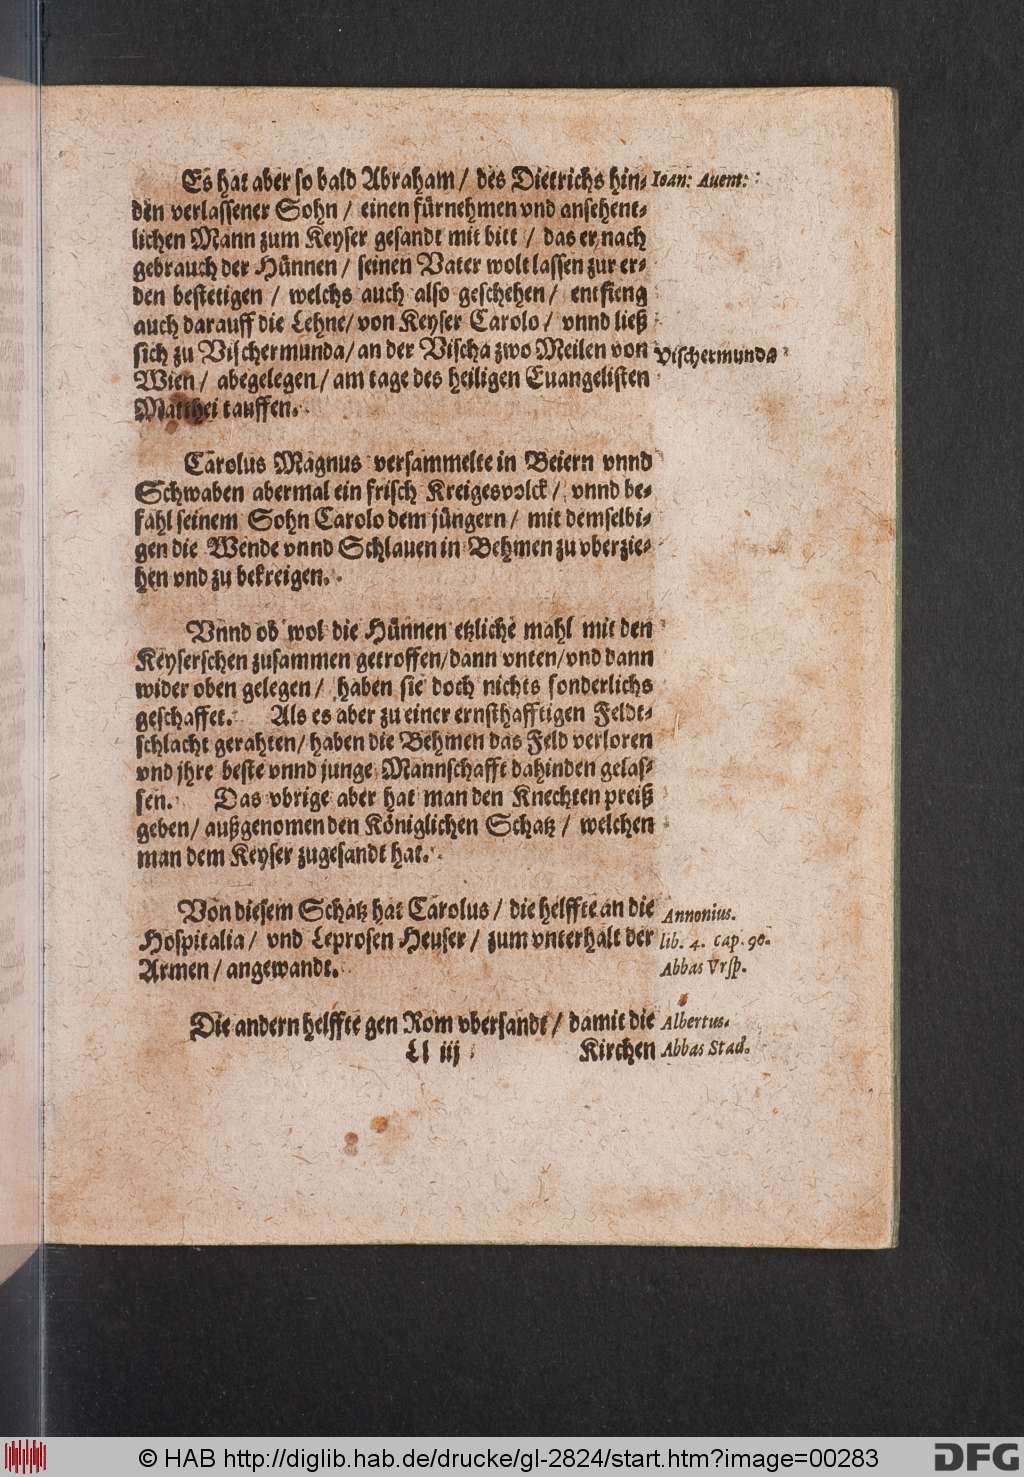 Es hat aber so bald Abraham / des Dietrichs hin-
den verlassener Sohn / einen fürnehmen vnd ansehent-
lichen Mann zum Keyser gesandt mit bitt / das er nach
gebrauch der Hünnen / seinen Vater wolt lassen zur er-
den bestetigen / welchs auch also geschehen / entfieng
auch darauff die Lehne / von Keyser Carolo / vnnd ließ
sich zu Vischermunda / an der Vischa zwo Meilen von
Wien / abegelegen / am tage des heiligen Euangelisten
Matthei tauffen.
Ioan: Auent:
Vischermunda
Carolus Magnus versammelte in Beiern vnnd
Schwaben abermal ein frisch Kreigesvolck / vnnd be-
fahl seinem Sohn Carolo dem jüngern / mit demselbi-
gen die Wende vnnd Schlauen in Behmen zu vberzie-
hen vnd zu bekreigen.
Vnnd ob wol die Hünnen etzliche mahl mit den
Keyserschen zusammen getroffen / dann vnten / vnd dann
wider oben gelegen / haben sie doch nichts sonderlichs
geschaffet. Als es aber zu einer ernsthafftigen Feldt-
schlacht gerahten / haben die Behmen das Feld verloren
vnd jhre beste vnnd junge Mannschafft dahinden gelas-
sen. Das vbrige aber hat man den Knechten preiß
geben / außgenomen den Königlichen Schatz / welchen
man dem Keyser zugesandt hat.
Von diesem Schatz hat Carolus / die helffte an die
Hospitalia / vnd Leprosen Heuser / zum vnterhalt der
Armen / angewandt.
Annonius.
lib. 4. cap. 90.
Abbas Vrsp.
Die andern helffte gen Rom vbersandt / damit die
Albertus.
Abbas Stad.
Ll iij
Kirchen
© HAB http://diglib.hab.de/drucke/gl-2824/start.htm?image=00283
DFG